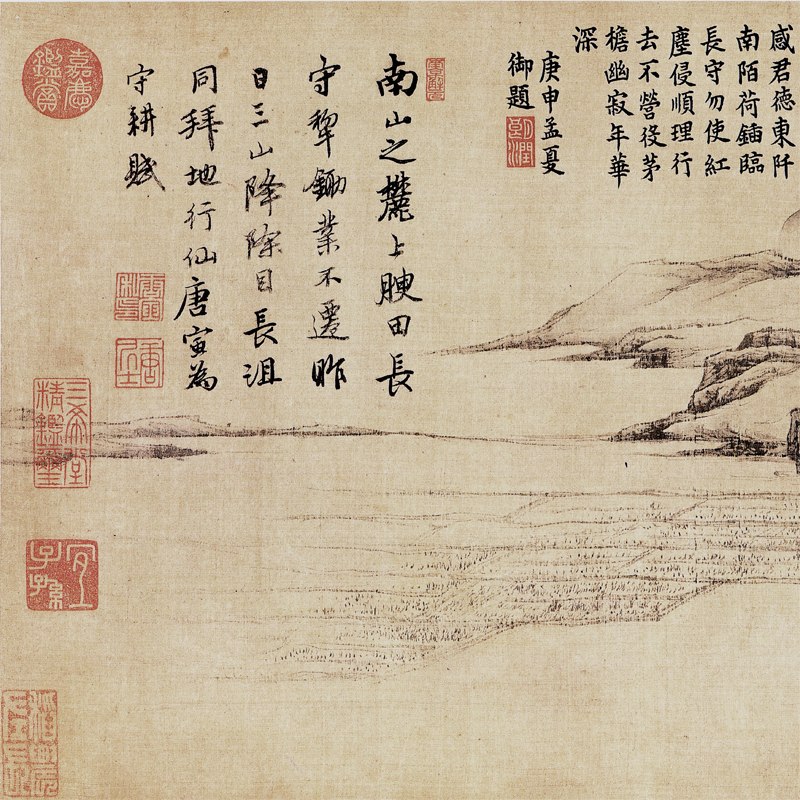 感君德東阡
南陌荷鍤臨
長守勿使紅
塵侵順理行
去不營役茅
檐幽寂年華
深
庚申孟夏
御題
朗潤
南山之麓上腴田長
守犂鋤業不遷昨
日三山降除目長沮
同拜地行仙唐寅為
守耕賦
嘉慶鑑賞
唐居士
三希堂精鑑璽
宜子孫